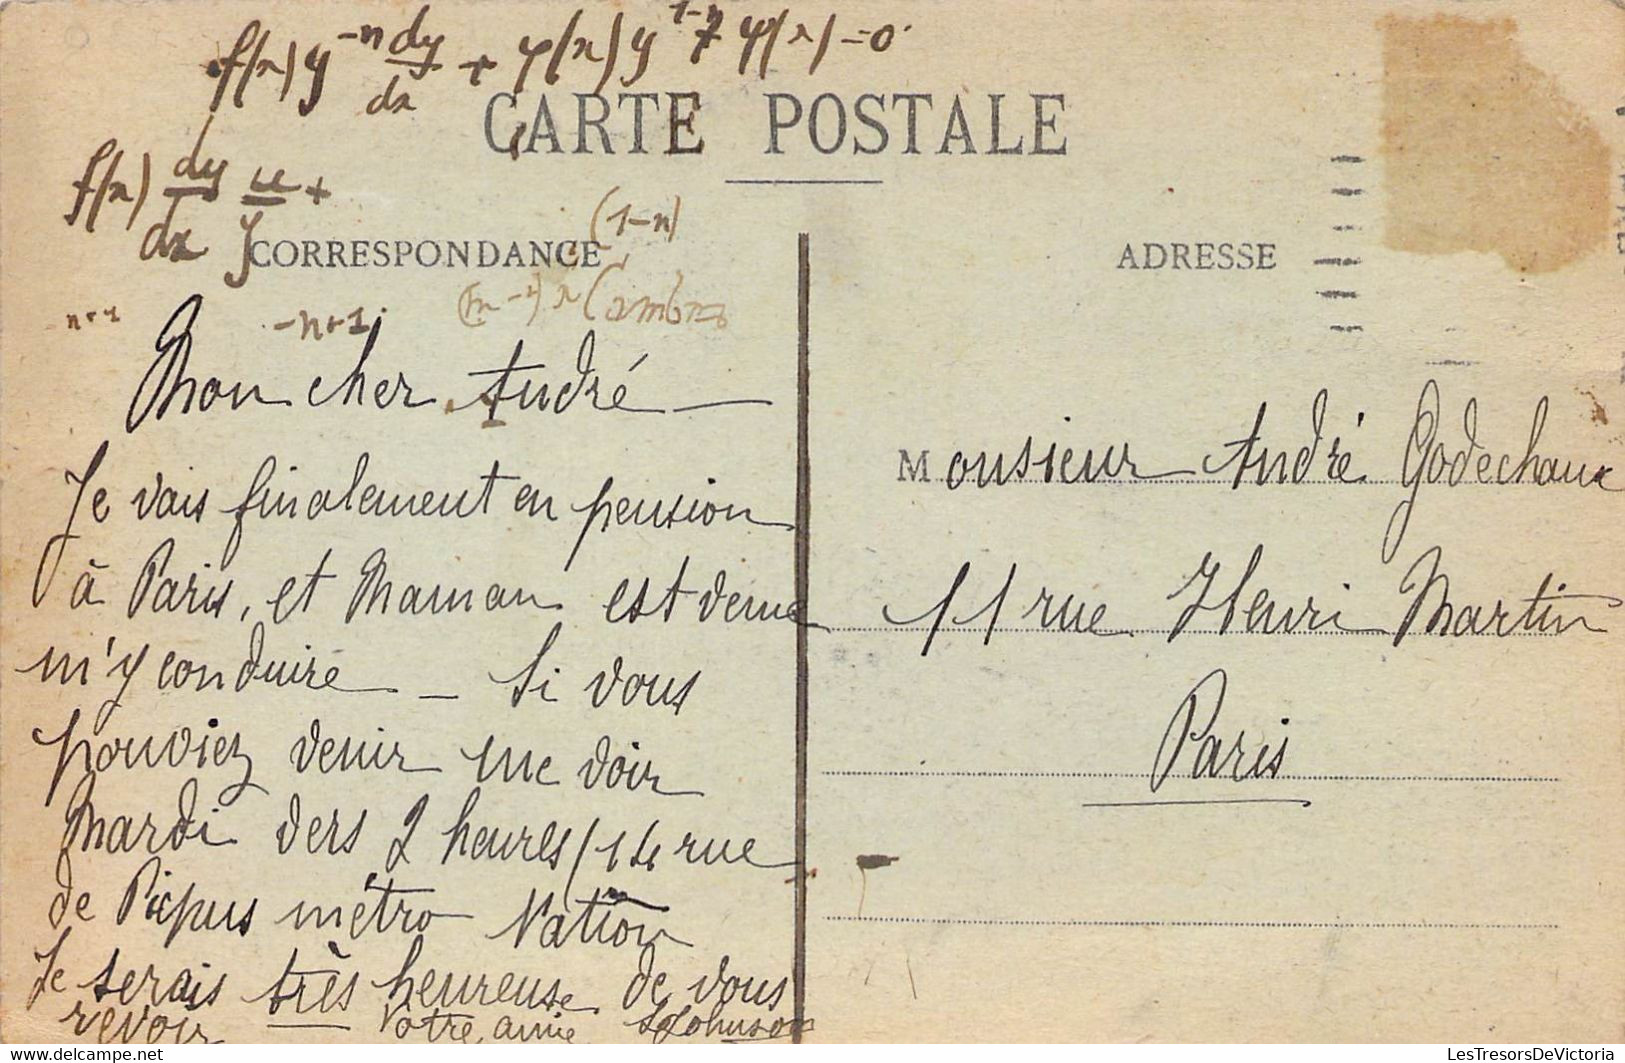 f(x) y^-n dy/dx + φ(x) y^1-n + ψ(x) = 0
CARTE POSTALE
f(x) dy/dx u/y +
(1-n)
CORRESPONDANCE
ADRESSE
n+1
-n+1
Mon cher André —
Je vais finalement en pension
à Paris, et Maman est venue
m'y conduire — Si vous
pouviez venir me voir
Mardi vers 2 heures / 14 rue
de Picpus métro Nation
Je serais très heureuse de vous
revoir Votre amie Johnson
Monsieur André Godechaux
11 rue Henri Martin
Paris
LesTresorsDeVictoria